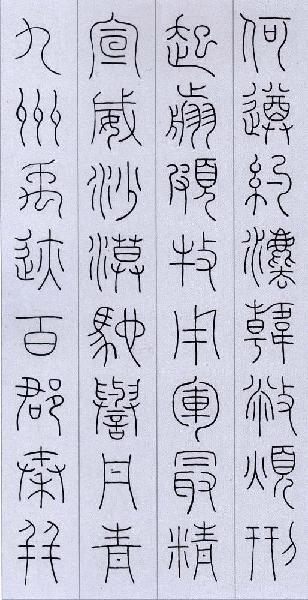 何遵約灋韓弊煩刑
起翦頗牧用軍最精
宣威沙漠馳譽丹青
九州禹迹百郡秦并